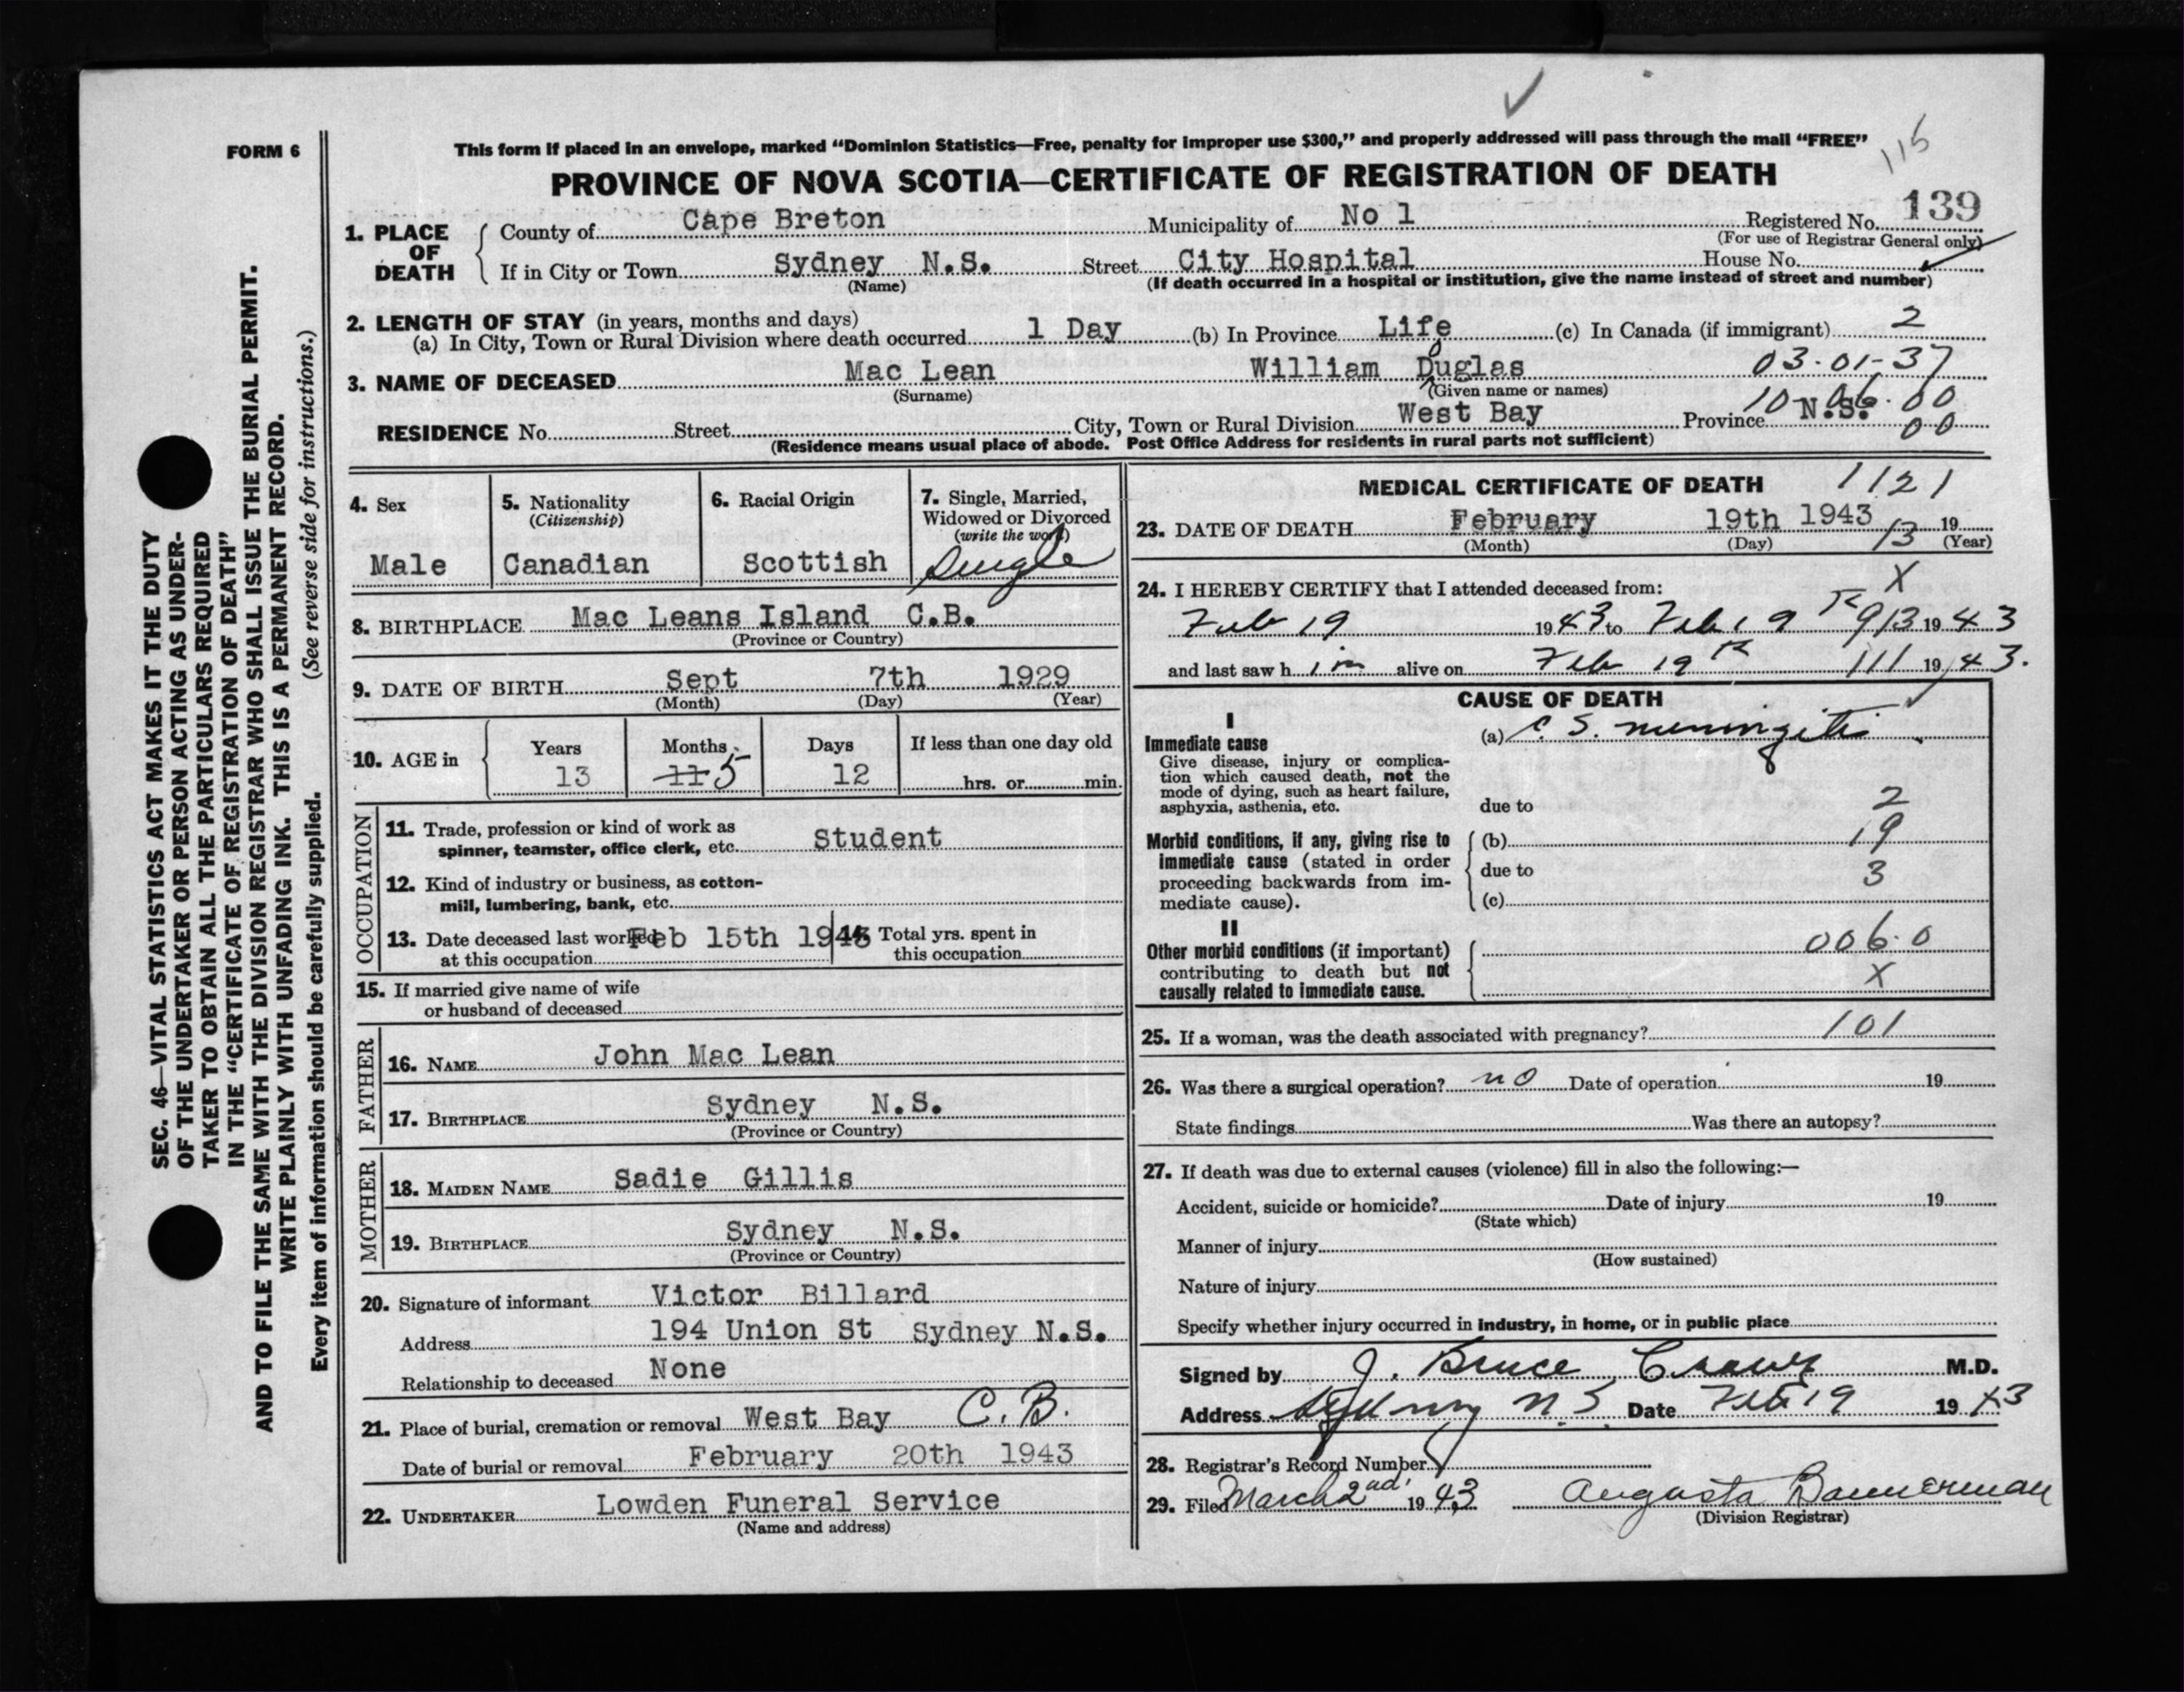 FORM 6
This form if placed in an envelope, marked "Dominion Statistics—Free, penalty for improper use $300," and properly addressed will pass through the mail "FREE"
115
PROVINCE OF NOVA SCOTIA—CERTIFICATE OF REGISTRATION OF DEATH
1. PLACE OF DEATH
County of Cape Breton Municipality of No 1 Registered No. 139
(For use of Registrar General only)
If in City or Town Sydney N.S. Street City Hospital House No.
(Name) (If death occurred in a hospital or institution, give the name instead of street and number)
2. LENGTH OF STAY (in years, months and days)
(a) In City, Town or Rural Division where death occurred 1 Day (b) In Province Life (c) In Canada (if immigrant) 2
3. NAME OF DECEASED Mac Lean William Douglas 03-01-37
(Surname) (Given name or names)
10-06.00
RESIDENCE No. Street City, Town or Rural Division West Bay Province N.S. 00
(Residence means usual place of abode. Post Office Address for residents in rural parts not sufficient)
4. Sex
Male
5. Nationality
(Citizenship)
Canadian
6. Racial Origin
Scottish
7. Single, Married,
Widowed or Divorced
(write the word)
Single
8. BIRTHPLACE Mac Leans Island C.B.
(Province or Country)
9. DATE OF BIRTH Sept 7th 1929
(Month) (Day) (Year)
10. AGE in
Years Months Days If less than one day old
13 11 5 12 hrs. or min.
OCCUPATION
11. Trade, profession or kind of work as
spinner, teamster, office clerk, etc. Student
12. Kind of industry or business, as cotton-
mill, lumbering, bank, etc.
13. Date deceased last worked Feb 15th 1943 14. Total yrs. spent in
at this occupation this occupation
15. If married give name of wife
or husband of deceased
FATHER
16. NAME John Mac Lean
17. BIRTHPLACE Sydney N.S.
(Province or Country)
MOTHER
18. MAIDEN NAME Sadie Gillis
19. BIRTHPLACE Sydney N.S.
(Province or Country)
20. Signature of informant Victor Billard
Address 194 Union St Sydney N.S.
Relationship to deceased None
21. Place of burial, cremation or removal West Bay C.B.
Date of burial or removal February 20th 1943
22. UNDERTAKER Lowden Funeral Service
(Name and address)
MEDICAL CERTIFICATE OF DEATH 1121
23. DATE OF DEATH February 19th 1943 13 19
(Month) (Day) (Year)
24. I HEREBY CERTIFY that I attended deceased from: X
Feb 19 1943 to Feb 19 th 913 1943
and last saw him alive on Feb 19th 111 1943.
CAUSE OF DEATH
I
Immediate cause
Give disease, injury or complica-
tion which caused death, not the
mode of dying, such as heart failure,
asphyxia, asthenia, etc.
(a) C. S. meningitis
due to 2
Morbid conditions, if any, giving rise to
immediate cause (stated in order
proceeding backwards from im-
mediate cause).
(b) 19
due to 3
(c)
II
Other morbid conditions (if important)
contributing to death but not
causally related to immediate cause.
006.0
X
25. If a woman, was the death associated with pregnancy? 101
26. Was there a surgical operation? no Date of operation 19
State findings Was there an autopsy?
27. If death was due to external causes (violence) fill in also the following:—
Accident, suicide or homicide? Date of injury 19
(State which)
Manner of injury
(How sustained)
Nature of injury
Specify whether injury occurred in industry, in home, or in public place
Signed by J. Bruce M.D.
Address Sydney N.S. Date Feb 19 1943
28. Registrar's Record Number
29. Filed March 2nd 1943 Augusta Bannerman
(Division Registrar)
SEC. 46—VITAL STATISTICS ACT MAKES IT THE DUTY
OF THE UNDERTAKER OR PERSON ACTING AS UNDER-
TAKER TO OBTAIN ALL THE PARTICULARS REQUIRED
IN THE "CERTIFICATE OF REGISTRATION OF DEATH"
AND TO FILE THE SAME WITH THE DIVISION REGISTRAR WHO SHALL ISSUE THE BURIAL PERMIT.
WRITE PLAINLY WITH UNFADING INK. THIS IS A PERMANENT RECORD.
(See reverse side for instructions.)
Every item of information should be carefully supplied.